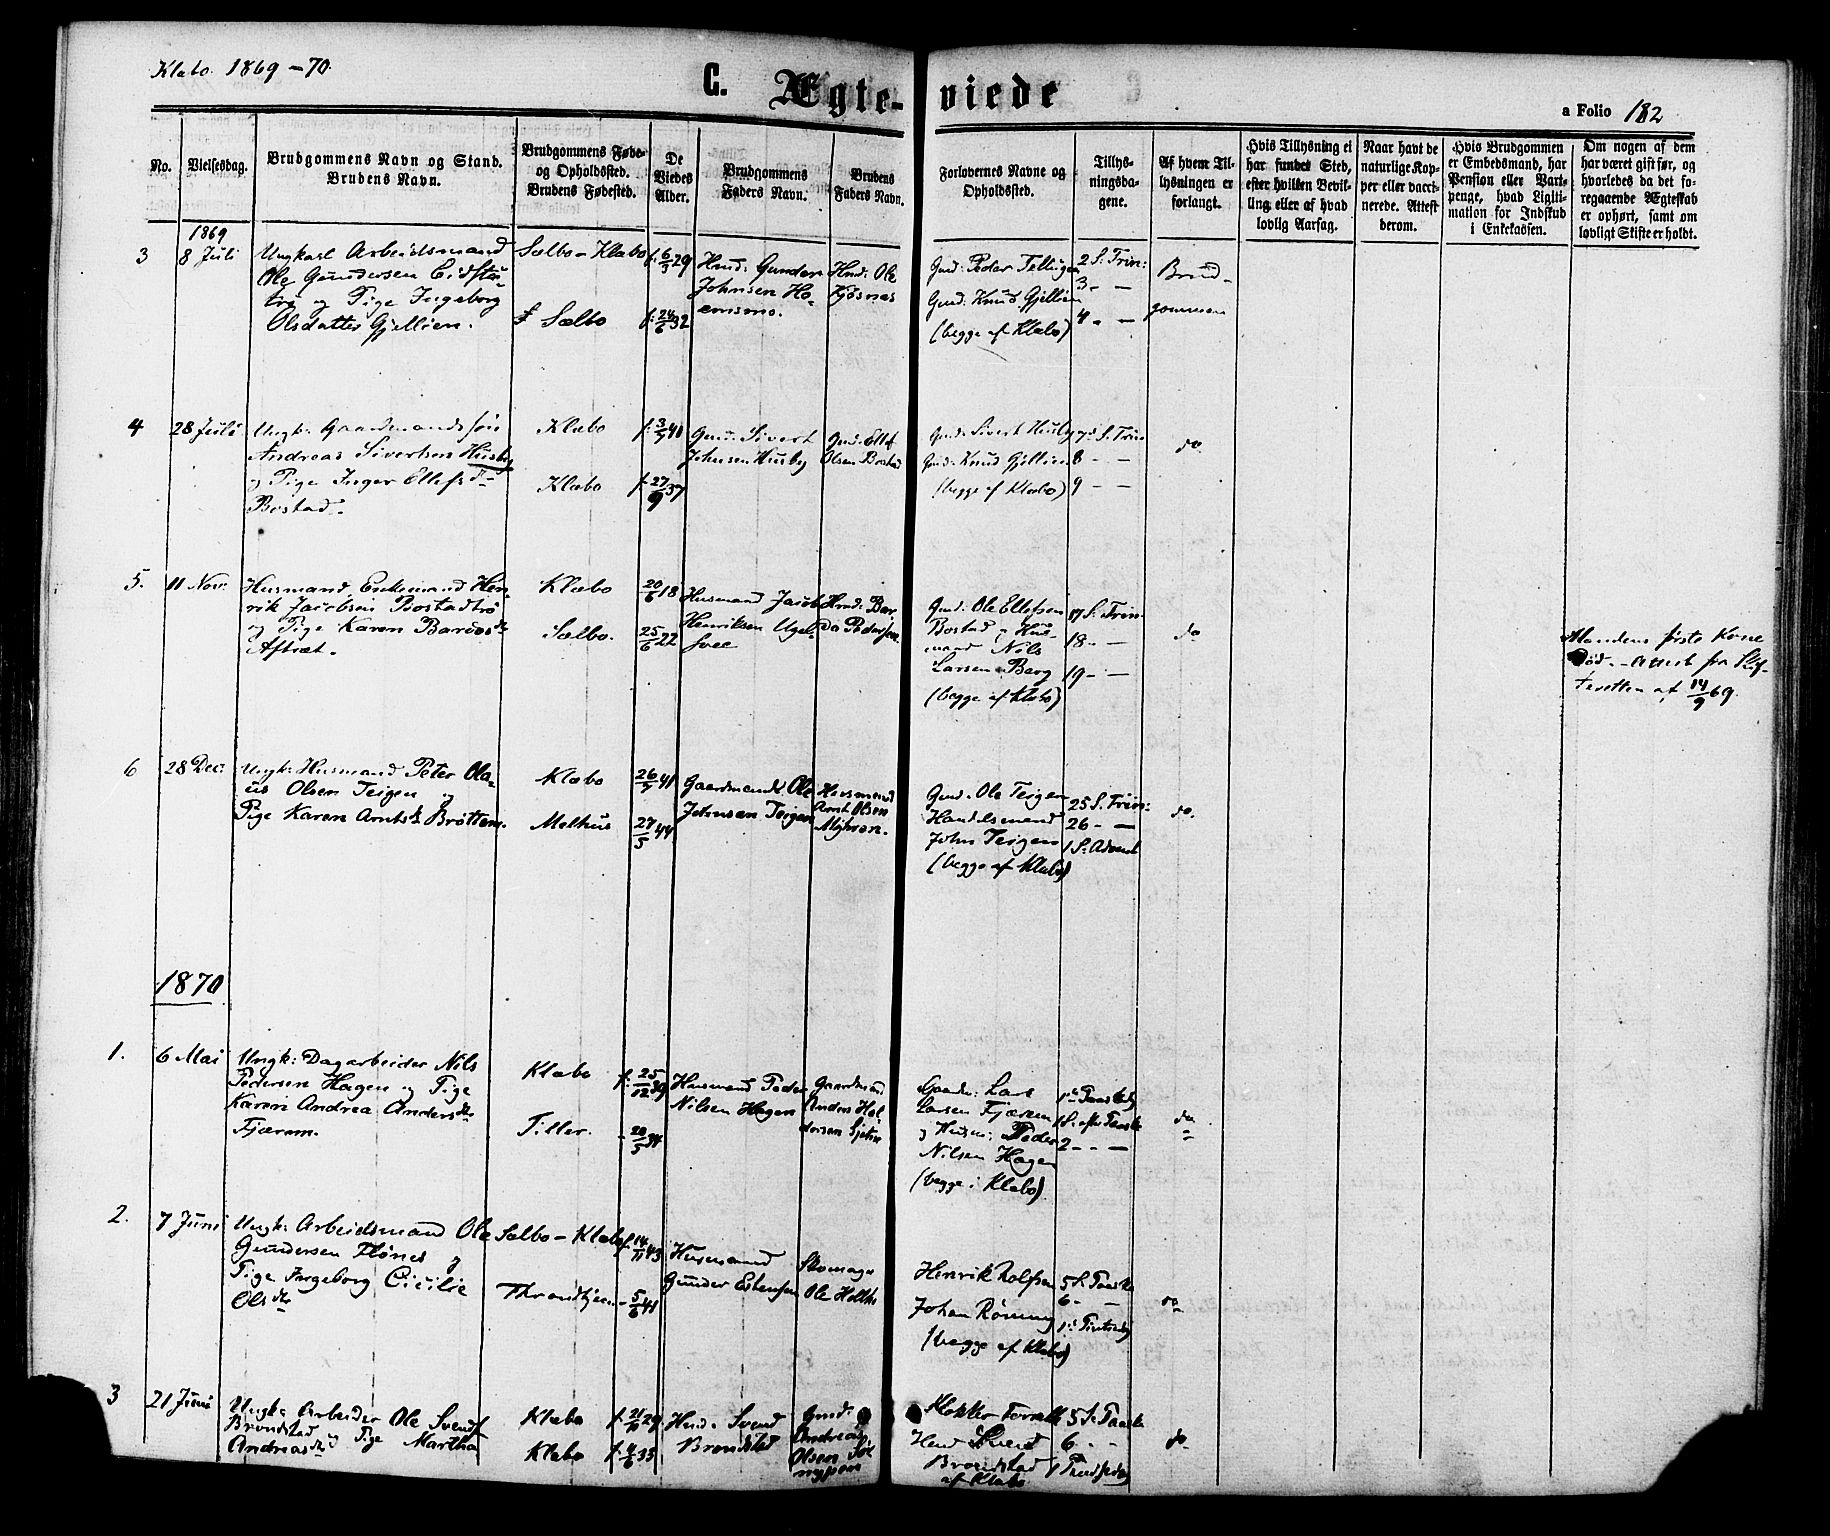 Klæbo. 1869-70.
C. Ægte-viede
a Folio 182
No.
Vielsesdag.
Brudgommens Navn og Stand.
Brudens Navn.
Brudgommens Føde-
og Opholdssted.
Brudens Fødested.
De
Viedes
Alder.
Brudgommens
Faders Navn.
Brudens
Faders Navn.
Forlovernes Navne og
Opholdssted.
Tillys-
ningsda-
gene.
Af hvem Til-
lysningen er
forlangt.
Hvis Tillysning ei
har fundet Sted,
efter hvilken Bevil-
ling eller af hvad
lovlig Aarsag.
Naar havt de
naturlige Kop-
per eller vacci-
nerede. Attest
derom.
Hvis Brudgommen
er Embedsmand, har
Pension eller Vart-
penge, hvad Ligiti-
mation for Indskud
i Enkekassen.
Om nogen af dem
har været gift før, og
hvorledes da det fo-
regaaende Ægteskab
er ophørt, samt om
lovligt Skifte er holdt.
1869
3
8 Juli
Ungkarl Arbeidsmand
Ole Gundersen Eidstu-
trø og Pige Ingeborg
Olsdatter Gjellien.
Sælbo - Klæbo
Sælbo
f. 6/3 29
f: 24/6 32
Hmd: Gunder
Johnsen Mo-
ensmo.
Hmd: Ole
Kjøsnes
Gmd: Peder Tellugen
Gmd: Knud Gjellien
(begge af Klæbo)
2 S: Trin:
3 - -
4 - -
Brud-
gommen
4
28 Juli
Ungk: Gaardmandssøn
Andreas Sivertsen Husby
og Pige Inger Ellefsdr
Bostad.
Klæbo
Klæbo
f. 3/7 40
f. 27/9 37
Gmd: Sivert
Johnsen Husby
Gmd: Ellef
Olsen Bostad
Gmd: Sivert Husby
Gmd: Knud Gjellien
(begge af Klæbo)
7de S. Trin
8 - -
9 - -
do.
5.
11 Nov:
Husmand, Enkemand Hen-
rik Jacobsen Bostadtrø
og Pige Karen Bardosdr
Aftræt.
Klæbo
Sælbo.
20/6 18
25/6 22
Husmand Jacob
Henriksen Ugel-
svee
Hmd: Bar-
do Pedersen
Gmd: Ole Ellefsen
Bostad og Hus-
mand Nils
Larsen Berg
(begge af Klæbo)
17 S: Trin
18 - -
19 - -
do
Mandens første Kone
Død. - Attest fra Skif-
teretten af 14/9 69.
6
28 Dec:
Ungk: Husmand Peter Ola-
us Olsen Teigen og
Pige Karen Arntsdr Brøttem.
Klæbo
Melhus
26/7 41
27/5 44
Gaardmand Ole
Johnsen Teigen
Husmand
Arnt Olsen
Myhren.
Gmd. Ole Teigen
Handelsmand
John Teigen
(begge af Klæbo)
25 S. Trin:
26 - -
1 S: Advent
do.
1870
1.
6 Mai
Ungk: Dagarbeider Nils
Pedersen Hagen og Pige
Karen Andrea Andersdr
Fjærem.
Klæbo
Tiller.
f: 25/12 39
- 20/3 34
Husmand Peder
Nilsen Hagen
Gaardmand
Anders Hal-
dorsen
Gaardm: Lars
Larsen Fjærem
og Husm: Peder
Nilsen Hagen
(begge i Klæbo)
1ste Paaskedg
1 S. efter Paaske
2 - -
do
2.
7 Juni
Ungk: Arbeidsmand Ole
Gundersen Flønes og
Pige Ingeborg Cicilie
Olsdr
Sælbo - Klæbo
Throndhjem
f. 14/11 43
- 5/6 41
Husmand
Gunder Estensen
Skomager
Ole Holthe
Henrik Rolfsen
Johan Rønning
(begge af Klæbo)
5 S. Paaske
6 - -
1ste Pintsedg
do
3
21 Juni
Ungk: Arbeider Ole Svends
Brøndstad og Pige Martha
Andreasdr
Klæbo
Klæbo
f. 21/11 29
f. 4/6 35
Hmd: Svend
Brøndstad
Gmd:
Andreas
Olsen
Klokker
Hmd Svend
Brøndstad
af Klæbo
5 S. Paaske
6 - -
1 Pindsedag
do